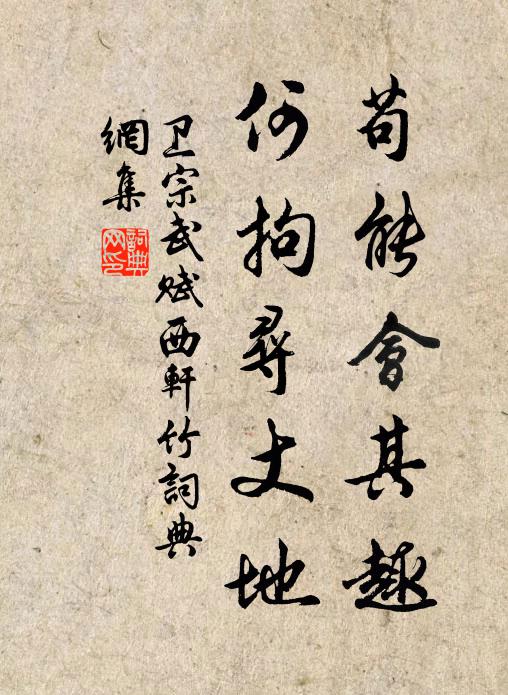 苟能會其趣
何拘尋丈地
卫宗武赋西軒竹詞典
網集
詞典
网印